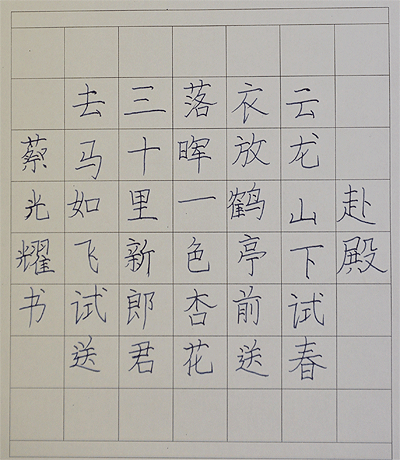 赴殿
云龙山下试春
衣放鹤亭前送
落晖一色杏花
三十里新郎君
去马如飞试送
蔡光耀书